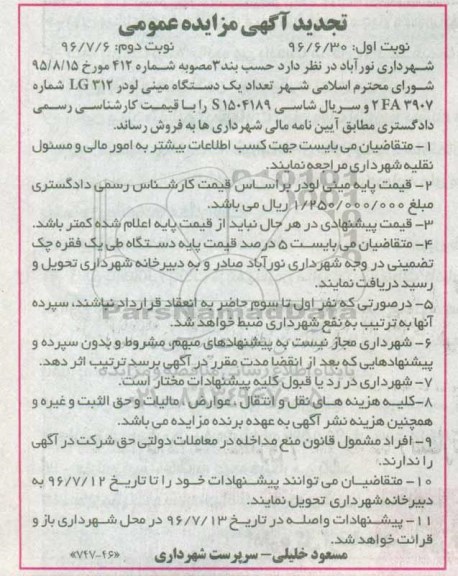 تجدید آگهی مزایده عمومی
نوبت اول: ۹۶/۶/۳۰ نوبت دوم: ۹۶/۷/۶
شهرداری نورآباد در نظر دارد حسب بند۳مصوبه شماره ۴۱۲ مورخ ۹۵/۸/۱۵
شورای محترم اسلامی شهر تعداد یک دستگاه مینی لودر LG ۳۱۲ شماره
۲FA ۳۹۰۷ و سریال شاسی S۱۵۰۴۱۸۹ را با قیمت کارشناسی رسمی
دادگستری مطابق آیین نامه مالی شهرداری ها به فروش رساند.
۱- متقاضیان می بایست جهت کسب اطلاعات بیشتر به امور مالی و مسئول
نقلیه شهرداری مراجعه نمایند.
۲- قیمت پایه مینی لودر بر اساس قیمت کارشناس رسمی دادگستری
مبلغ ۱/۲۵۰/۰۰۰/۰۰۰ ریال می باشد.
۳- قیمت پیشنهادی در هر حال نباید از قیمت پایه اعلام شده کمتر باشد.
۴- متقاضیان می بایست ۵ درصد قیمت پایه دستگاه طی یک فقره چک
تضمینی در وجه شهرداری نورآباد صادر و به دبیرخانه شهرداری تحویل و
رسید دریافت نمایند.
۵- درصورتی که نفر اول تا سوم حاضر به انعقاد قرارداد نباشند، سپرده
آنها به ترتیب به نفع شهرداری ضبط خواهد شد.
۶- شهرداری مجاز نیست به پیشنهادهای مبهم، مشروط و بدون سپرده و
پیشنهادهایی که بعد از انقضا مدت مقرر در آگهی برسد ترتیب اثر دهد.
۷- شهرداری در رد یا قبول کلیه پیشنهادات مختار است.
۸-کلیه هزینه های نقل و انتقال، عوارض، مالیات و حق الثبت و غیره و
همچنین هزینه نشر آگهی به عهده برنده مزایده می باشد.
۹- افراد مشمول قانون منع مداخله در معاملات دولتی حق شرکت در آگهی
را ندارند.
۱۰- متقاضیان می توانند پیشنهادات خود را تا تاریخ ۹۶/۷/۱۲ به
دبیرخانه شهرداری تحویل نمایند.
۱۱- پیشنهادات واصله در تاریخ ۹۶/۷/۱۳ در محل شهرداری باز و
قرائت خواهد شد.
مسعود خلیلی- سرپرست شهرداری «۷۴۷-۴۶»
ParsNamadData